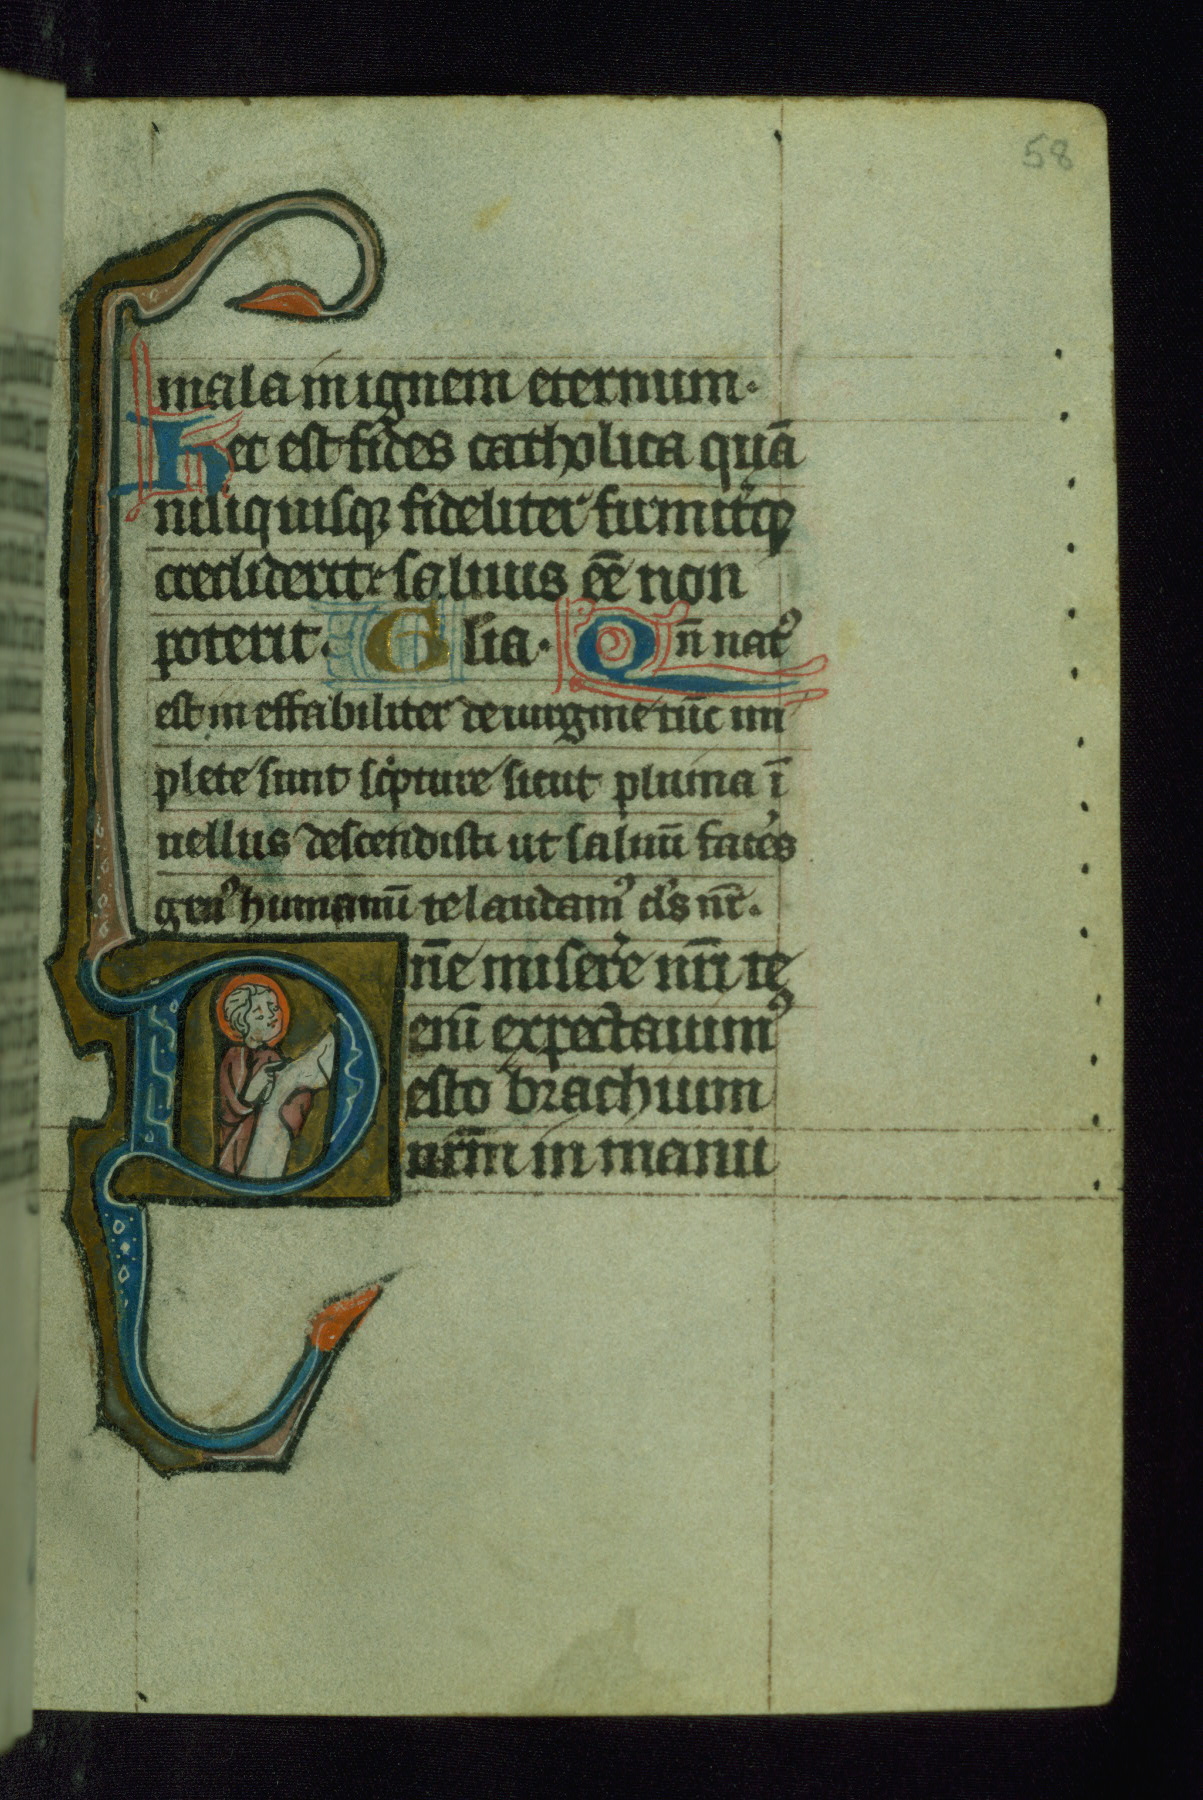 58
mala in ignem eternum.
Hec est fides catholica quā
nisi quisq; fideliter firmit̾q;
crediderit: saluus eē non
poterit. Glia. Qn̄ natꝰ
est ineffabiliter de uirgine tūc im
plete sunt sc̾pture sicut pluuia ī
uellus descendisti ut saluū facēs
genꝰ humanū te laudamꝰ d's nr̄.
Dn̄e miserēre nr̄i te
enī expectauimꝰ
esto brachium
nr̄m in manu